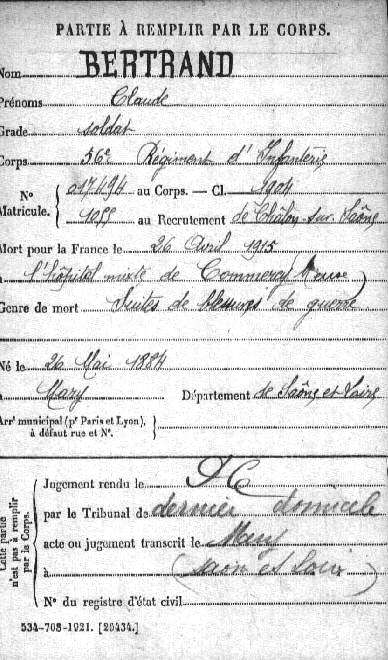 PARTIE À REMPLIR PAR LE CORPS.
Nom BERTRAND
Prénoms Claude
Grade soldat
Corps 56e Régiment d'Infanterie
N° Matricule. { 017494 au Corps. — Cl. 1904
1055 au Recrutement de Châlon-sur-Saône
Mort pour la France le 26 Avril 1915
à l'hôpital mixte de Commercy (Meuse)
Genre de mort Suites de blessures de guerre
Né le 26 Mai 1884
à Mary Département de Saône et Loire
Arrt municipal (pr Paris et Lyon), à défaut rue et N°. }
Cette partie n'est pas à remplir par le Corps. {
Jugement rendu le AC
par le Tribunal de dernier domicile
acte ou jugement transcrit le Mary
à (Saon et Loir)
N° du registre d'état civil
534-708-1921. [26434.]